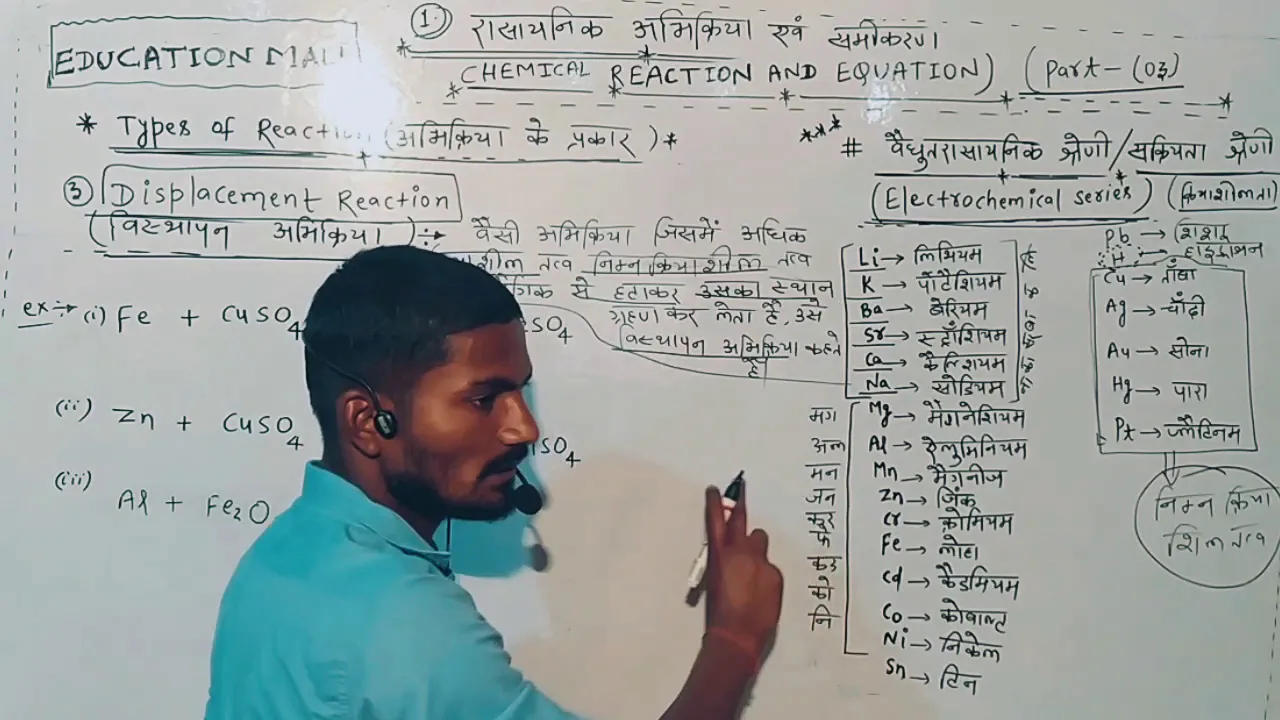 EDUCATION MALL
① रासायनिक अभिक्रिया एवं समीकरण
CHEMICAL REACTION AND EQUATION) (Part-(03)
* Types of Reaction (अभिक्रिया के प्रकार)*
③ Displacement Reaction
(विस्थापन अभिक्रिया) :→ वैसी अभिक्रिया जिसमें अधिक
तत्व निम्न क्रियाशील तत्व
से हटाकर उसका स्थान
ग्रहण कर लेता है, उसे
विस्थापन अभिक्रिया कहते
है
ex:→ (i) Fe + CuSO4
SO4
(ii) Zn + CuSO4
SO4
(iii) Al + Fe2O
*** # वैधुतरासायनिक श्रेणी/सक्रियता श्रेणी
(Electrochemical series) (क्रियाशीलता)
Li → लिथियम
K → पोटैशियम
Ba → बेरियम
Sr → स्ट्रॉंशियम
Ca → कैल्शियम
Na → सोडियम
मग Mg → मैगनेशियम
अल Al → ऐलुमिनियम
मन Mn → मैगनीज
जन Zn → जिंक
कर Cr → क्रोमियम
फे Fe → लोहा
कड Cd → कैडमियम
को Co → कोबाल्ट
नि Ni → निकेल
Sn → टिन
Pb → शिशा
H → हाइड्रोजन
Cu → ताँबा
Ag → चाँदी
Au → सोना
Hg → पारा
Pt → प्लैटिनम
निम्न क्रिया
शिल तत्व